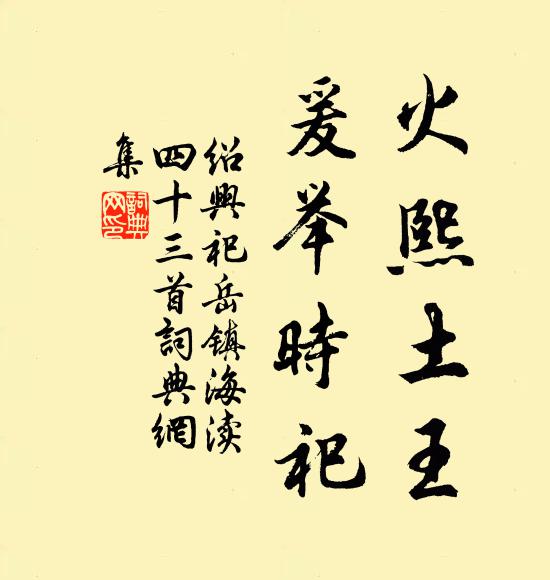 火熙土王
爰举時祀
绍興祀岳镇海渎
四十三首詞典網
集
詞典
网印